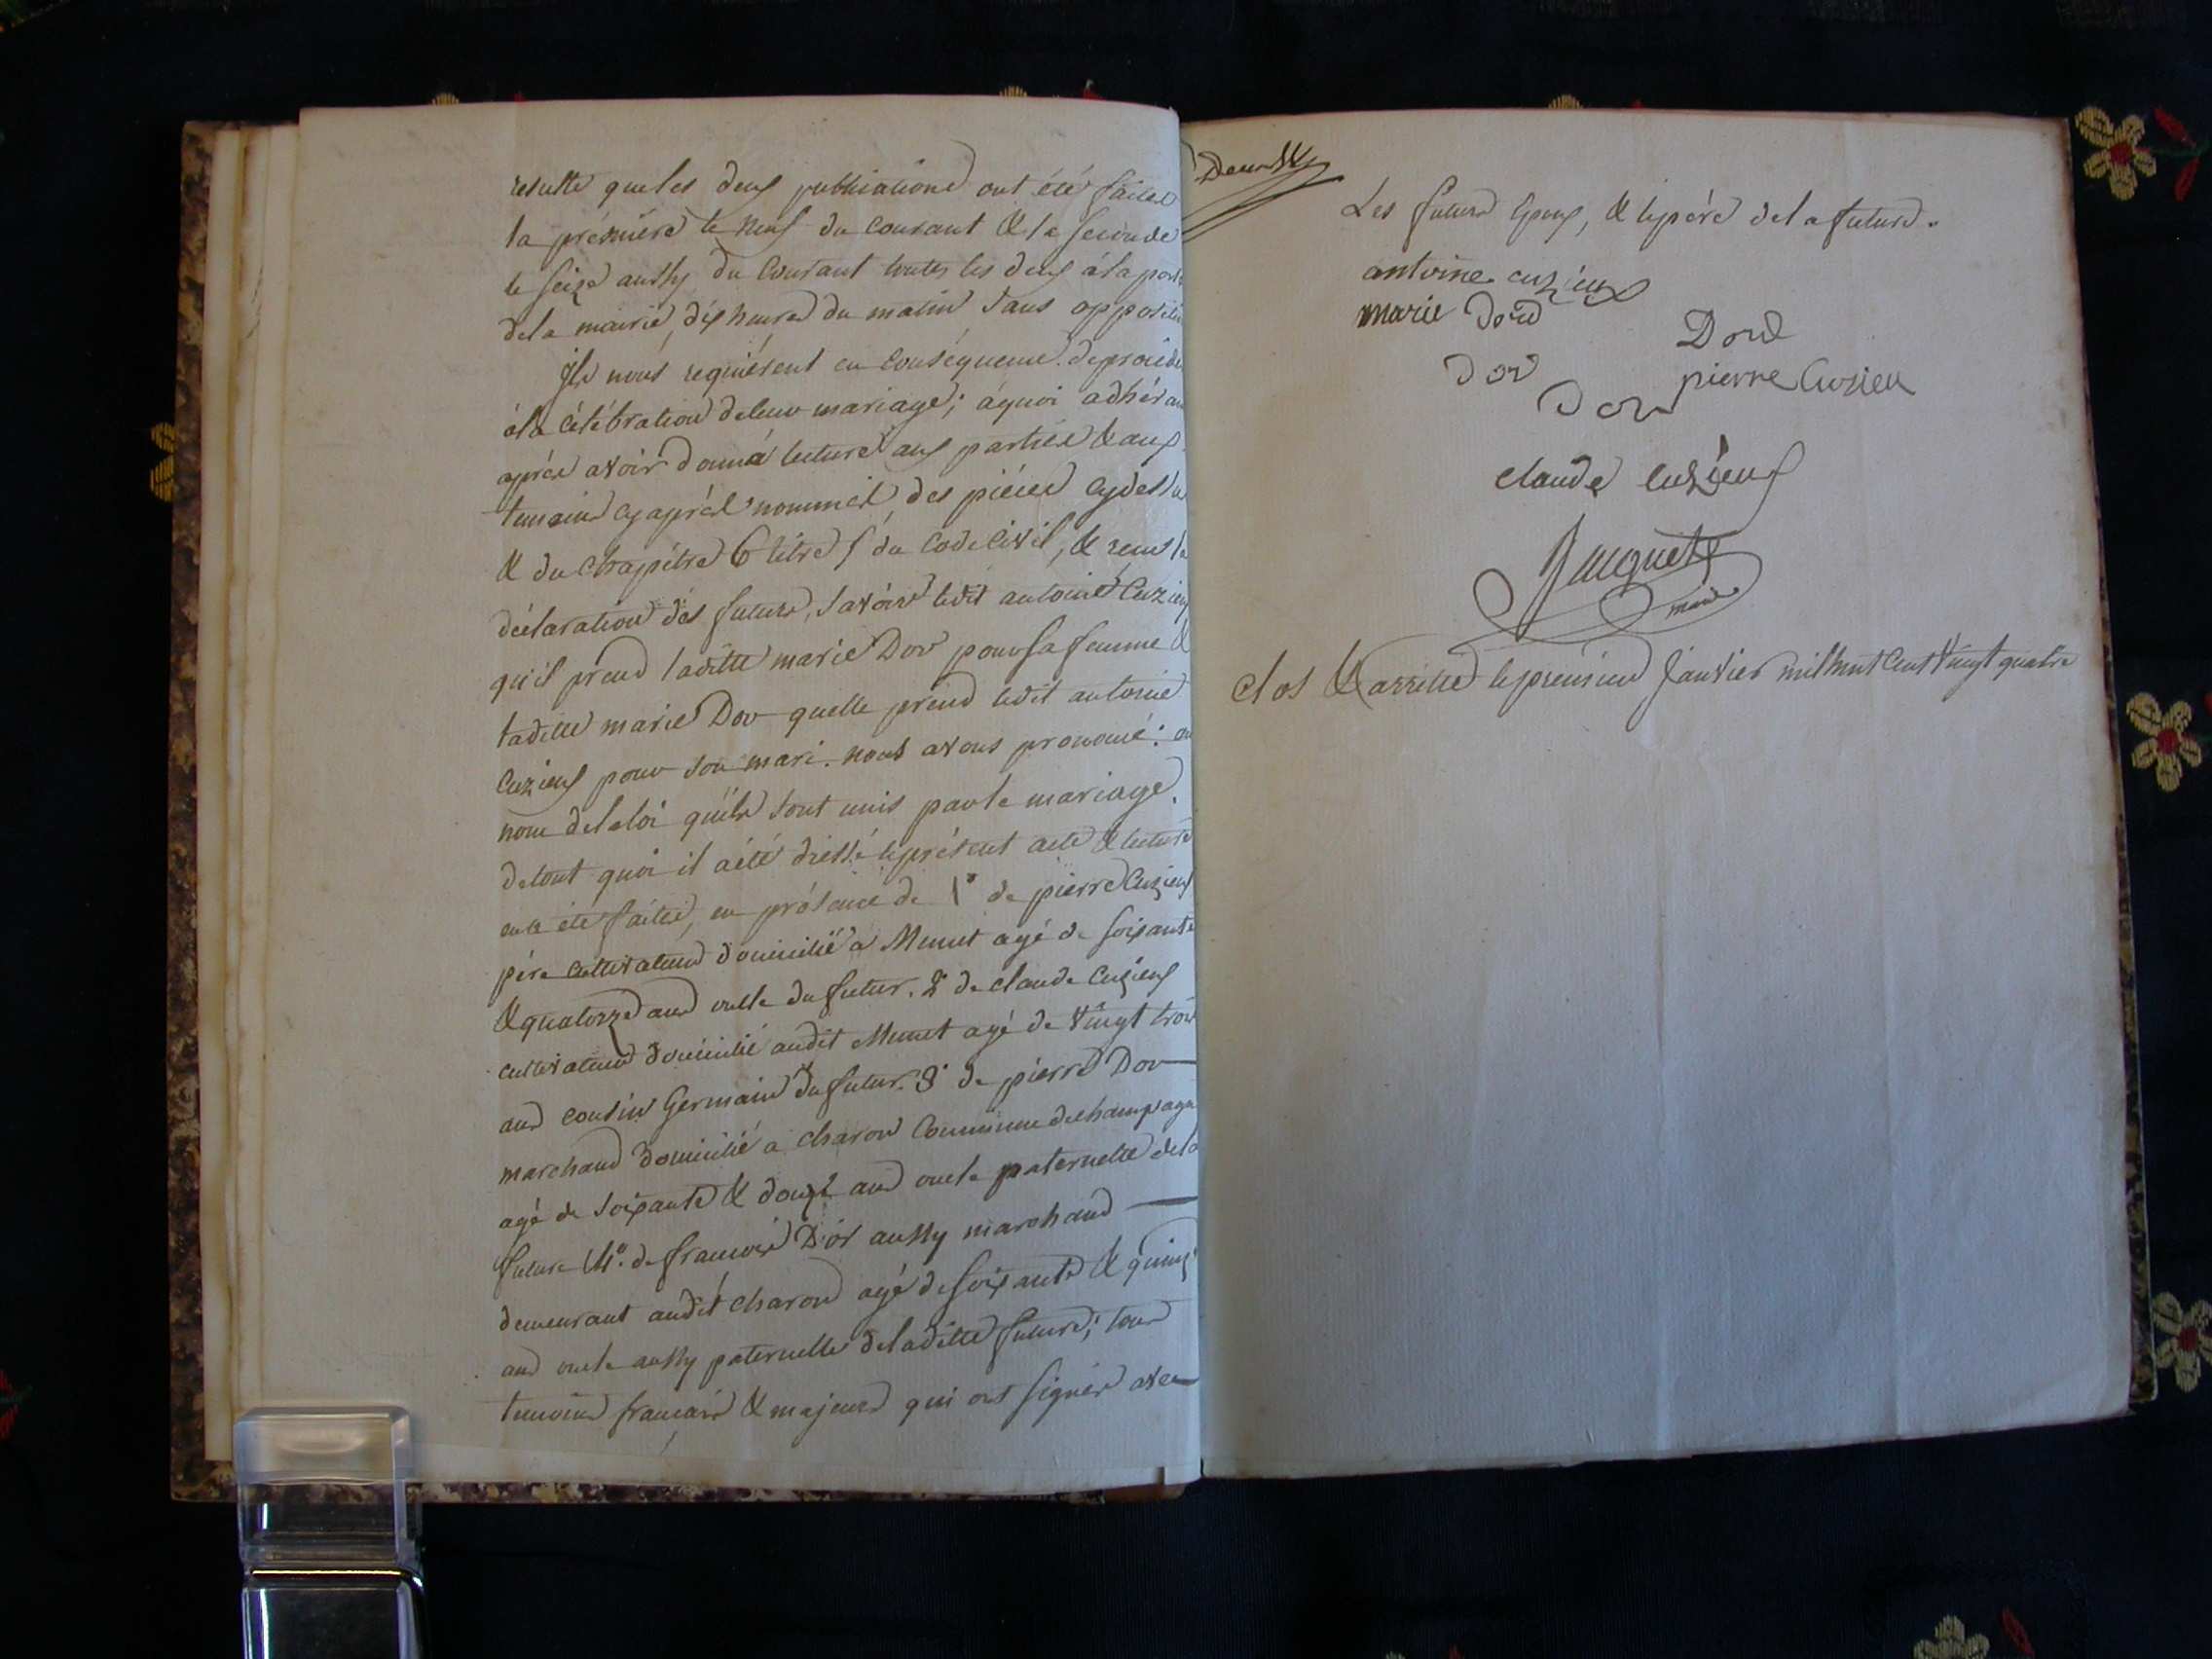 resulte que les deux publications ont été faites
la première le neuf du courant & la seconde
le seize aussy du courant toutes les deux à la porte
de la mairie, dix heures du matin sans oppositio
Ils nous requièrent en conséquence de procéde
à la célébration de leur mariage; àquoi adhéran
après avoir donné lecture aux parties & aux
temoins cy après nommés, des pièces cy dessu
& du chapitre 6 titre 5 du Code Civil, & reçus la
déclaration des futurs, savoir ledit antoine Cuzieux
qu'il prend laditte marie Dor pour sa femme &
laditte marie Dor quelle prend ledit antoine
Cuzieux pour son mari. nous avons prononcé: au
nom de la loi quils sont unis par le mariage.
de tout quoi il a été dressé le présent acte & lecture
en été faitte, en présence de 1° de pierre Cuzieux
père cultivateur domicilié a Munet agé de soixante
& quatorze ans oncle du futur. 2° de claude Cuzieux
cultivateur domicilié audit Munet agé de vingt trois
ans cousin Germain du futur. 3° de pierre Dor
marchand domicilié a charon Commune de champagne
agé de soixante & douze ans oncle paternelle de la
future 4°. de francois Dor aussy marchand
demeurant audit charon agé de soixante & quinze
ans oncle aussy paternelle de laditte future; tous
temoins français & majeurs qui ont signés avec
Les futurs Epoux, & le père de la future.
antoine cuzieux
marie dord
Dord
dor
pierre Cuzieu
dor
claude cuzieux
Jauquet
maire
clos & arretté le premier Janvier mil huit Cent vingt quatre